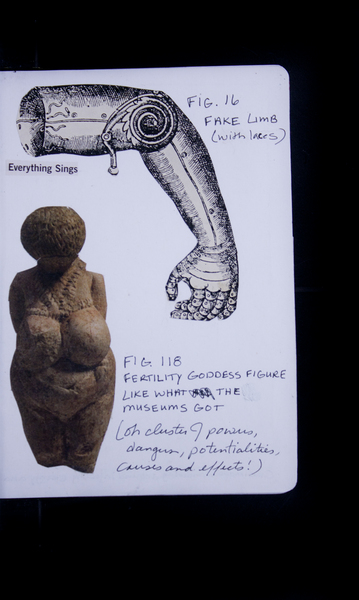 FIG. 16
FAKE LIMB
(with laces)
Everything Sings
FIG 118
FERTILITY GODDESS FIGURE
LIKE WHAT THE
MUSEUMS GOT
(oh cluster of powers,
dangers, potentialities,
causes and effects!)